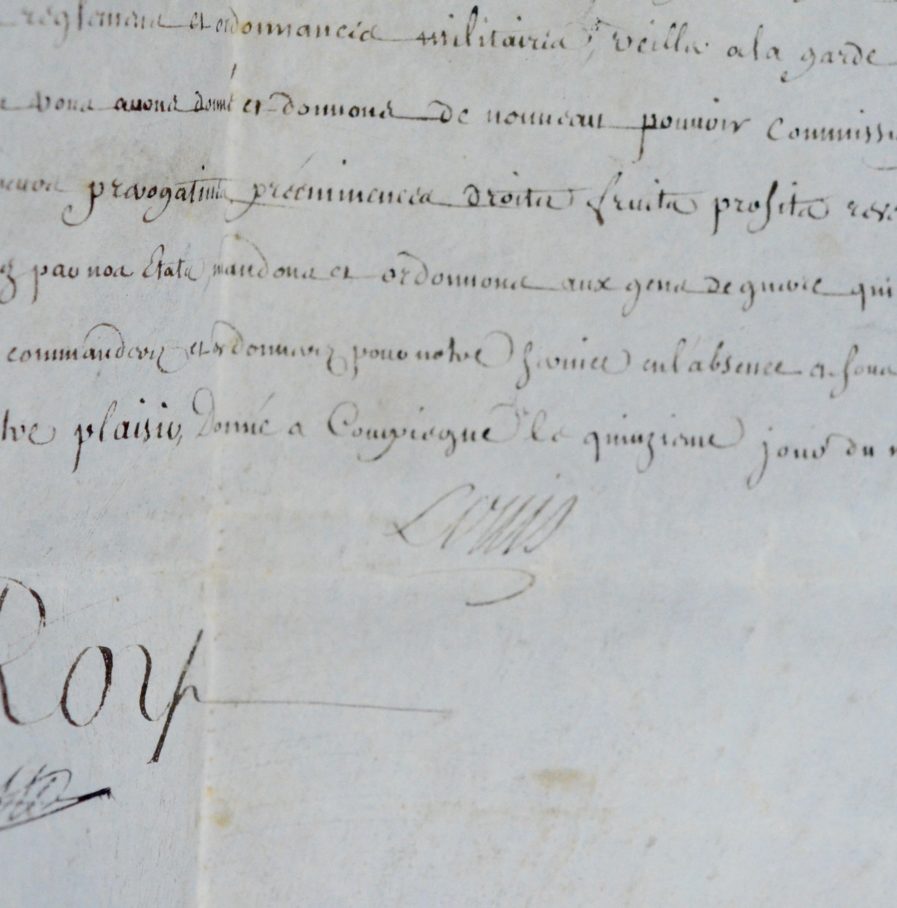 reglemens et ordonnances militaires, veiller a la garde
vous avons donné et donnons de nouveau pouvoir commissi
prerogatives préeminences droits fruits profits reve
par nos Etats, mandons et ordonnons aux gens de guerre qui
commanderez et ordonnerez pour notre service en l'absence et sous
tre plaisir, Donné a Compiegne le quinzieme jour du
Louis
Roy